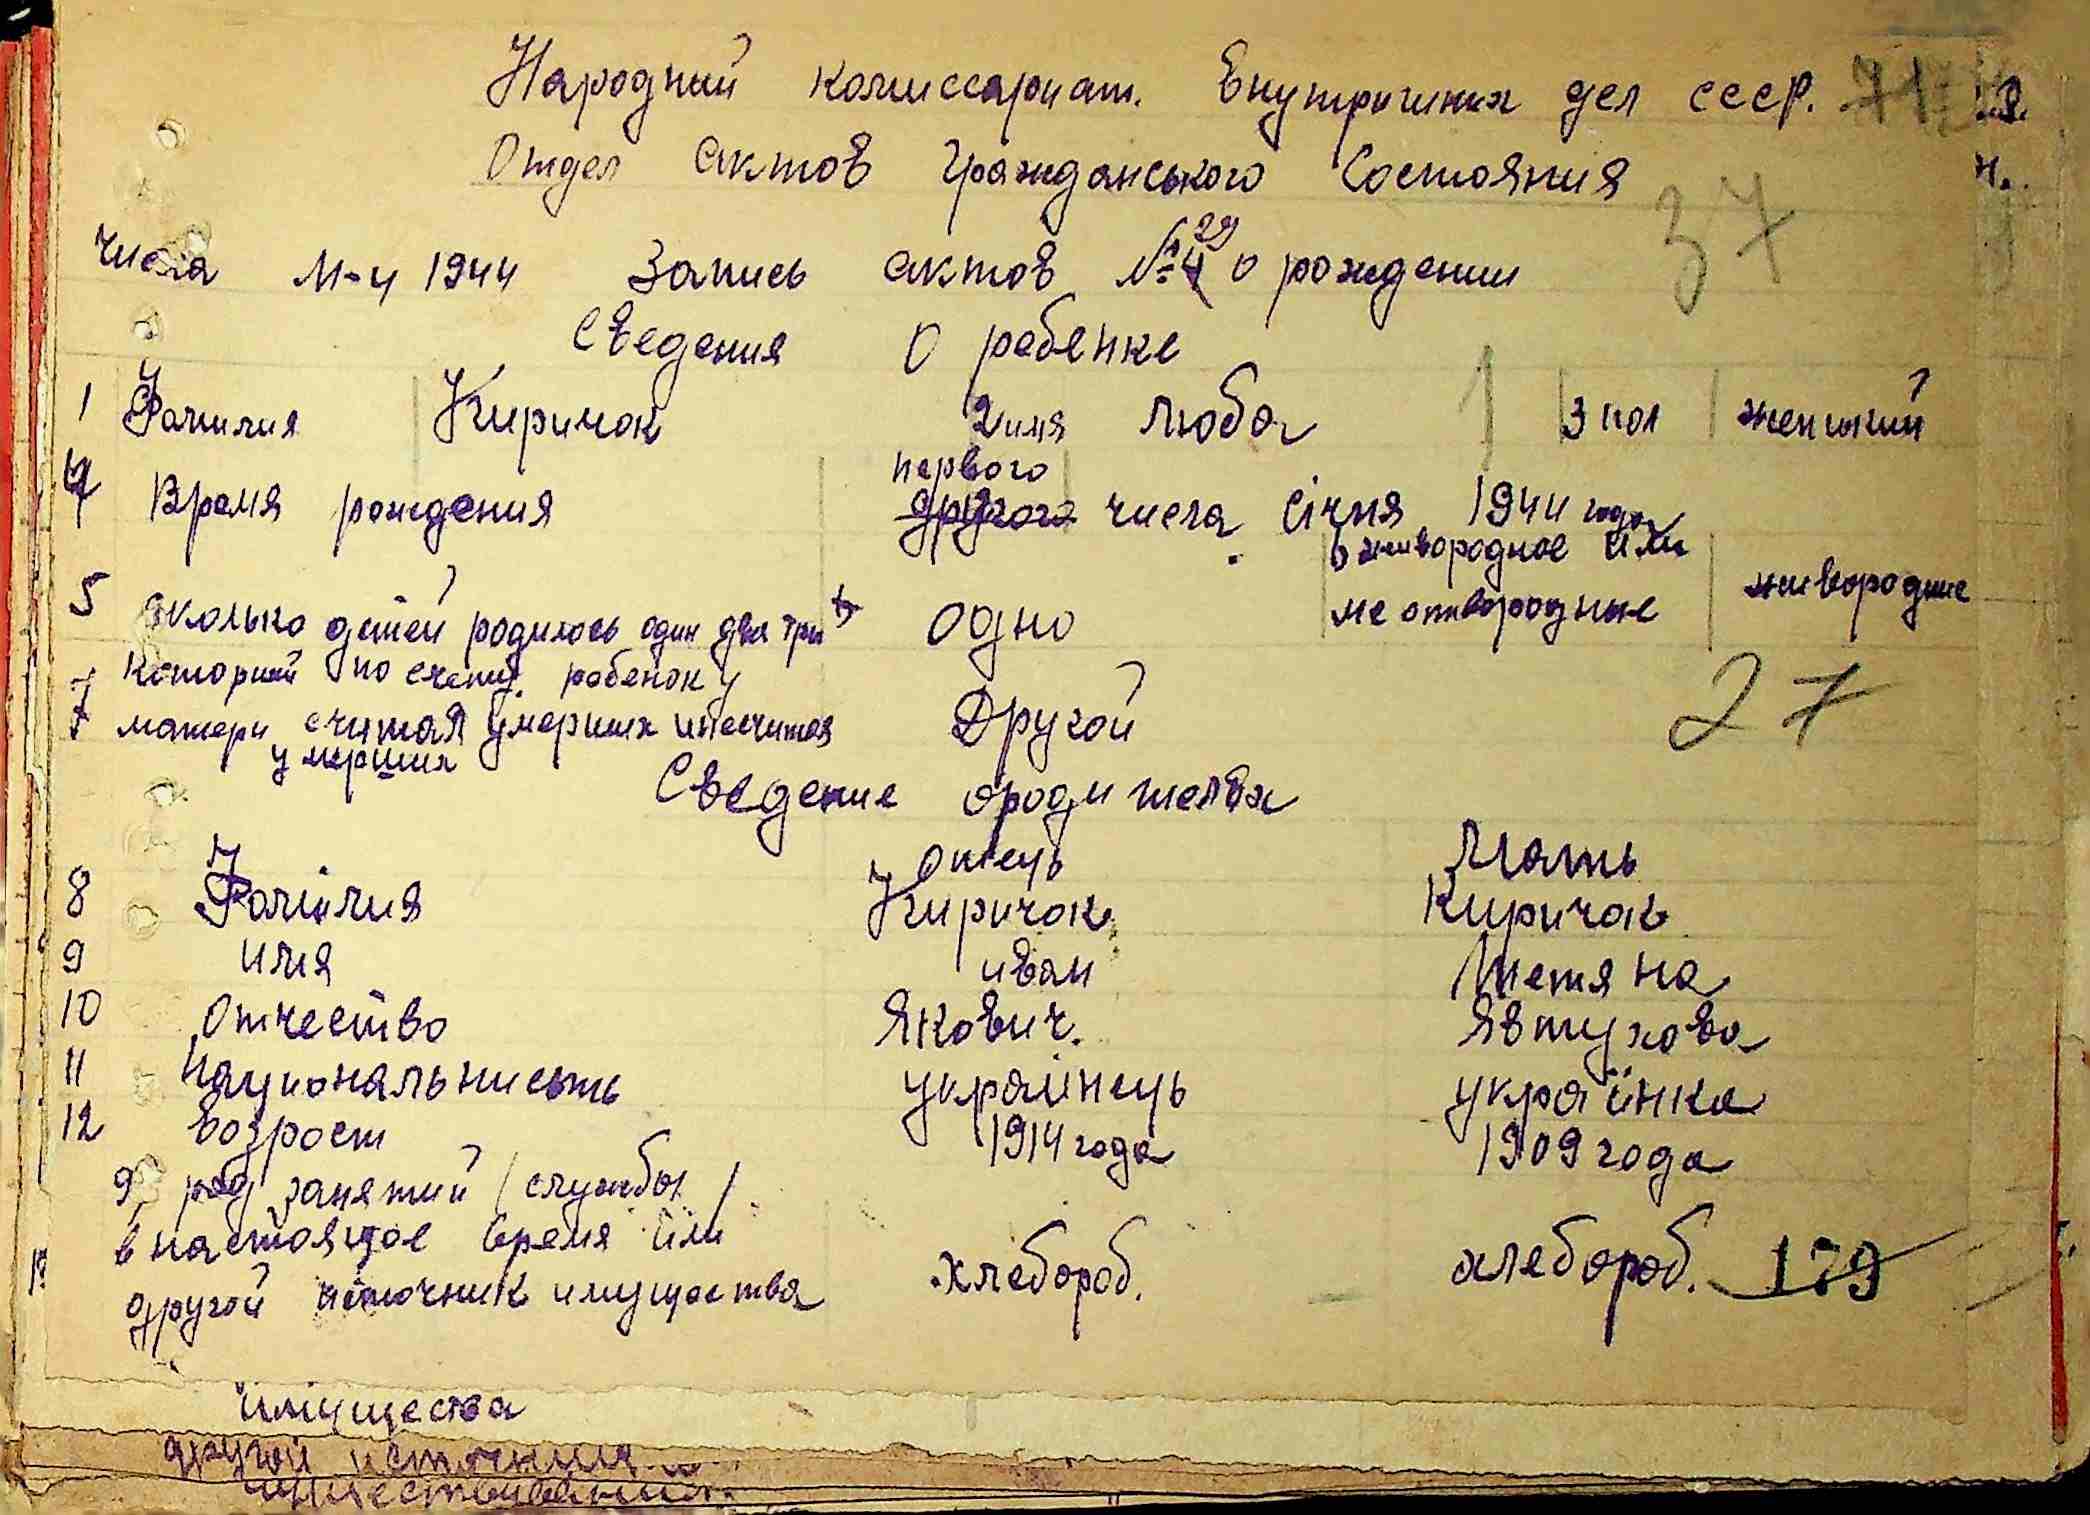 Народний комиссариат. Внутриших дел СССР. 71
Отдел Актов Гражданського Состояния
37
числа М-ц 1944 Запись актов №4 29 о рождении
Сведения о ребенке
1 Фамилия Киричок 2 имя Люба 3 пол женський
первого
4 Время рождения другого числа січня 1944 года
6 живородное или
5 сколько детей родилось один два три одно мертвородные живородние
который по счету ребенок у
7 матери считая умерших и несчитая Другой 27
умерших
Сведение ородителях
Отець Мать
8 Фамилия Киричок Киричок
9 имя иван Тетяна
10 Отчество Якович. Явтухова
11 Национальнисть украінець украінка
12 возраст 1914 года 1909 года
9, род занятий / службы /
в настоящое время или
другой источник имущества хлебороб. хлебороб. 179
имущества
другой источник